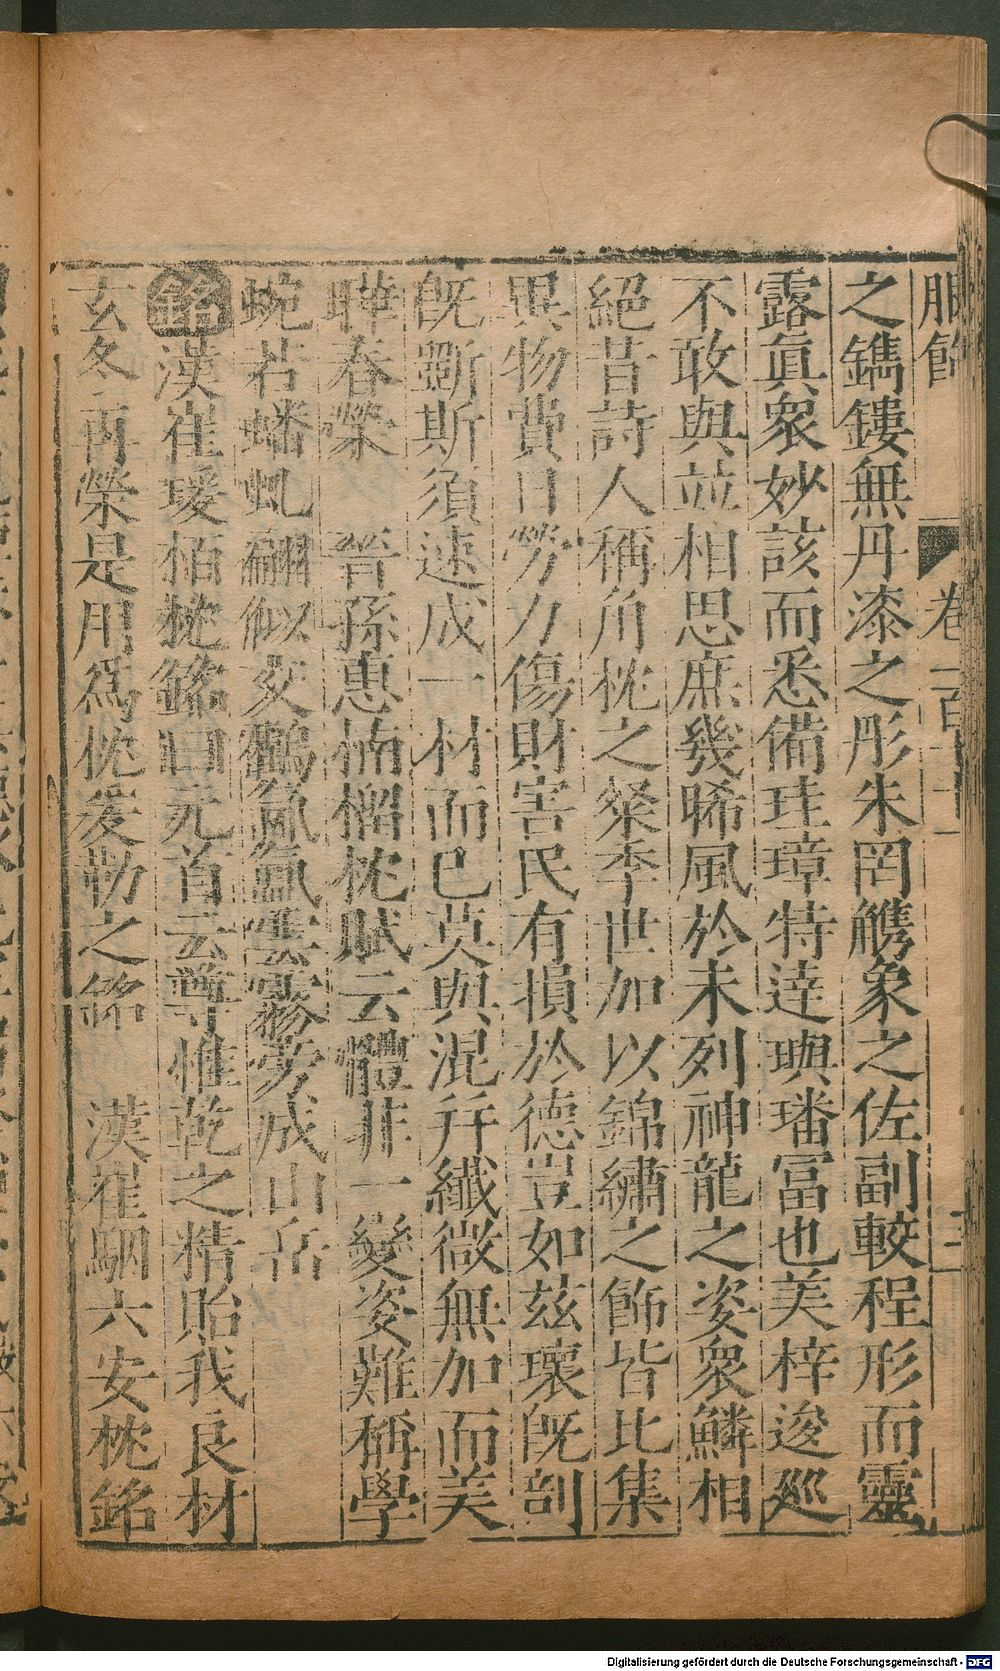 服飾 卷一百十 三
之鐫鏤無丹漆之彤朱罔觹象之佐副較程形而靈
露眞衆妙該而悉備珪璋特達璵璠冨也美梓逡廵
不敢與並相思庶幾晞風於未列神龍之姿衆鱗相
絕昔詩人稱角枕之粲季世加以錦繡之飾皆比集
異物費日勞力傷財害民有損於德豈如兹瓌旣剖
旣斵斯須速成一材而已莫與混幷纎微無加而美
曄春榮 晉孫惠楠榴枕賦云體非一變姿難稱學
蜿若蟠虬翩似交鶴氤氲雲霧穷成山岳
銘漢崔瑗栢枕銘曰元首云尊惟乾之精貽我良材
玄冬再榮是用爲枕爰勒之銘 漢崔駰六安枕銘
Digitalisierung gefördert durch die Deutsche Forschungsgemeinschaft - DFG